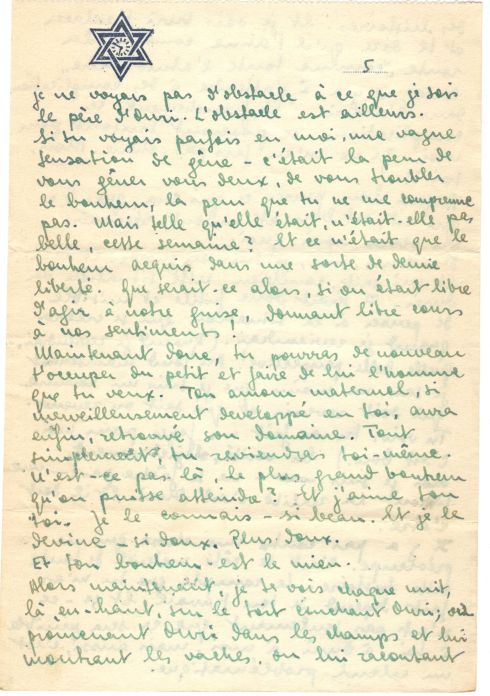 5
je ne voyais pas d'obstacle à ce que je sois
le père d'Ouri. L'obstacle est ailleurs.
Si tu voyais parfois en moi, une vague
sensation de gêne – c'était la peur de
vous gêner vous deux, de vous troubler
le bonheur, la peur que tu ne me comprenne
pas. Mais telle qu'elle était, n'était-elle pas
belle, cette semaine? Et ce n'était que le
bonheur acquis dans une sorte de demie
liberté. Que serait-ce alors, si on était libre
d'agir à notre guise, donnant libre cours
à nos sentiments!
Maintenant donc, tu pourras de nouveau
t'occuper du petit et faire de lui l'homme
que tu veux. Ton amour maternel, si
merveilleusement developpé en toi, aura
enfin, retrouvé son domaine. Tout
simplement, tu reviendras toi-même.
N'est-ce pas là, le plus grand bonheur
qu'on puisse atteindre? Et j'aime ton
toi. Je le connais – si beau. Et je le
devine – si doux. Plus doux.
Et ton bonheur est le mien.
Alors maintenant, je te vois chaque nuit,
là en-haut, sur le toit Ouri; ou
promenant Ouri dans les champs et lui
montrant les vaches, ou lui racontant